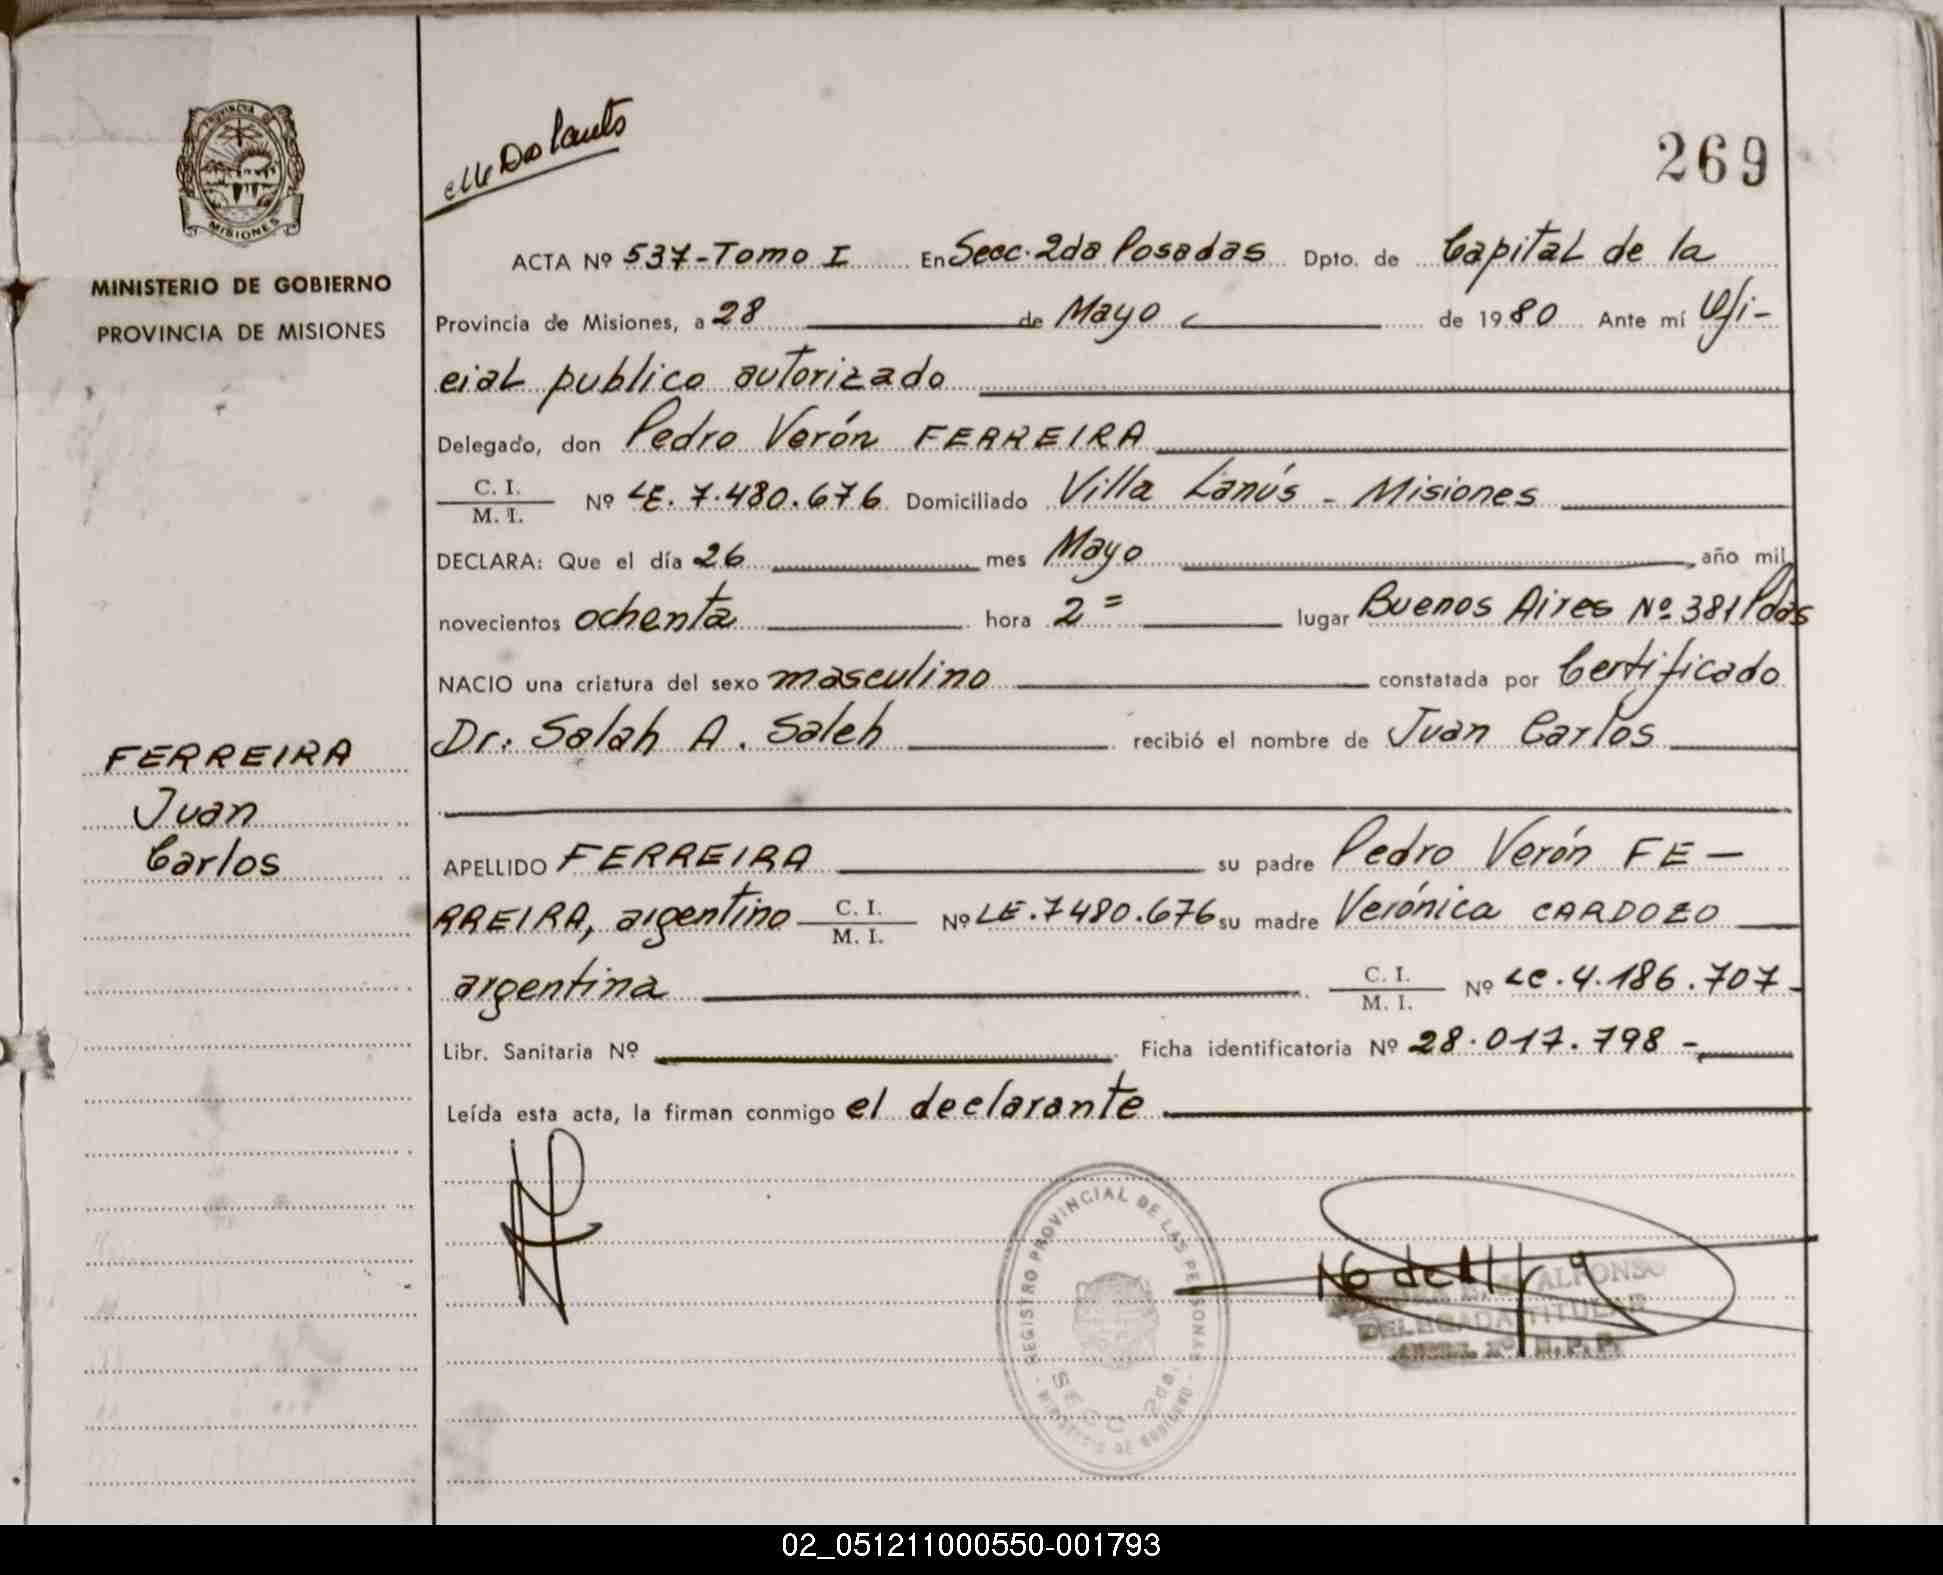 PROVINCIA DE
MISIONES
MINISTERIO DE GOBIERNO
PROVINCIA DE MISIONES
FERREIRA
Juan
Carlos
269
ACTA Nº 537-Tomo I En Secc. 2da Posadas Dpto. de Capital de la
Provincia de Misiones, a 28 de Mayo de 1980 Ante mí Ofi-
cial publico autorizado
Delegado, don Pedro Verón FERREIRA
C. I.
M. I. Nº LE. 7.480.676 Domiciliado Villa Lanús - Misiones
DECLARA: Que el día 26 mes Mayo año mil
novecientos ochenta hora 2= lugar Buenos Aires Nº 381 Pdas
NACIO una criatura del sexo masculino constatada por Certificado
Dr. Salah A. Saleh recibió el nombre de Juan Carlos
APELLIDO FERREIRA su padre Pedro Verón FE-
RREIRA, argentino C. I.
M. I. Nº LE.7480.676 su madre Verónica CARDOZO
argentina C. I.
M. I. Nº LC.4.186.707-
Libr. Sanitaria Nº Ficha identificatoria Nº 28.017.798-
Leída esta acta, la firman conmigo el declarante
REGISTRO PROVINCIAL DE LAS PERSONAS
SECC. 2da.
MINISTERIO DE GOBIERNO
ALFONSO
DELEGADA TITULAR
R.P.P.
02_051211000550-001793